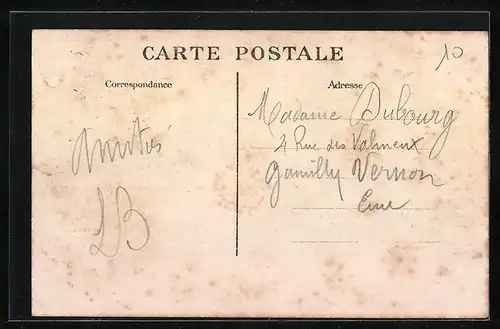 CARTE POSTALE
10
Correspondance
Amitiés
LB
Adresse
Madame Dubourg
4 Rue des Valmeux
Gamilly Vernon
Eure